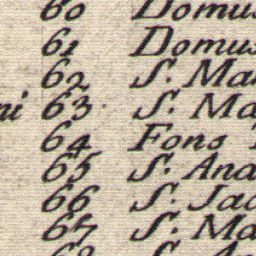 60 Domu
61 Domus
62 S. Ma
ni 63. S. Ma
64 Fons
65 S. And
66 S. Jac
67 S. Ma
68 S.